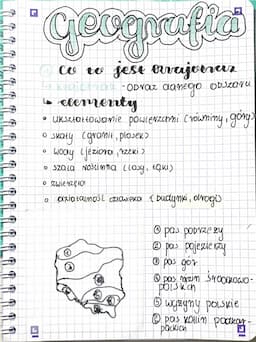 Geografia
Co to jest krajobraz
krajobraz - obraz danego obszaru
elementy
ukształtowanie powierzchni (równiny, góry)
skały (granit, piasek)
wody (jeziora, rzeki)
szata roślinna (lasy, łąki)
zwierzęta
działalność człowieka (budynki, drogi)
① pas pobrzeży
② pas pojezierzy
③ pas gór
④ pas nizin środkowo-
polskich
⑤ wyżyny polskie
⑥ pas kotlin podkar-
packich